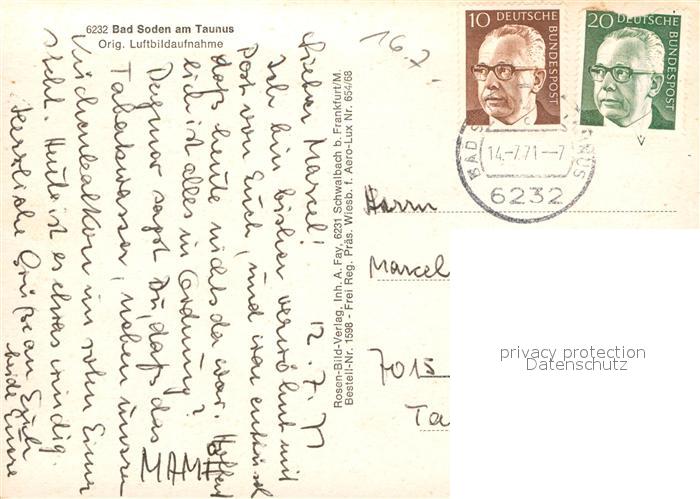 6232 Bad Soden am Taunus
Orig. Luftbildaufnahme
12.7.71
Lieber Marcel!
Ich bin bisher verwöhnt mit
Post von Euch, und war enttäuscht
daß heute nichts da war. Hoffent
lich ist alles in Ordnung?
Dagmar sagst Du, daß das
Tabakwasser, neben unserer
Küchenbalkon im roten Eimer
steht. Heute ist es etwas windig.
Herzliche Grüße an Euch
beide Eure
MAMI
Rosen-Bild-Verlag, Inh. A. Fay, 6231 Schwalbach b. Frankfurt/M.
Bestell-Nr. 1598 - Frei Reg. Präs. Wiesb. f. Aero-Lux Nr. 654/68
16.7.
10 DEUTSCHE
BUNDESPOST
20 DEUTSCHE
BUNDESPOST
BAD S
14.-7.71.--7
6232
Herrn
Marcel
7015
Ta
privacy protection
Datenschutz